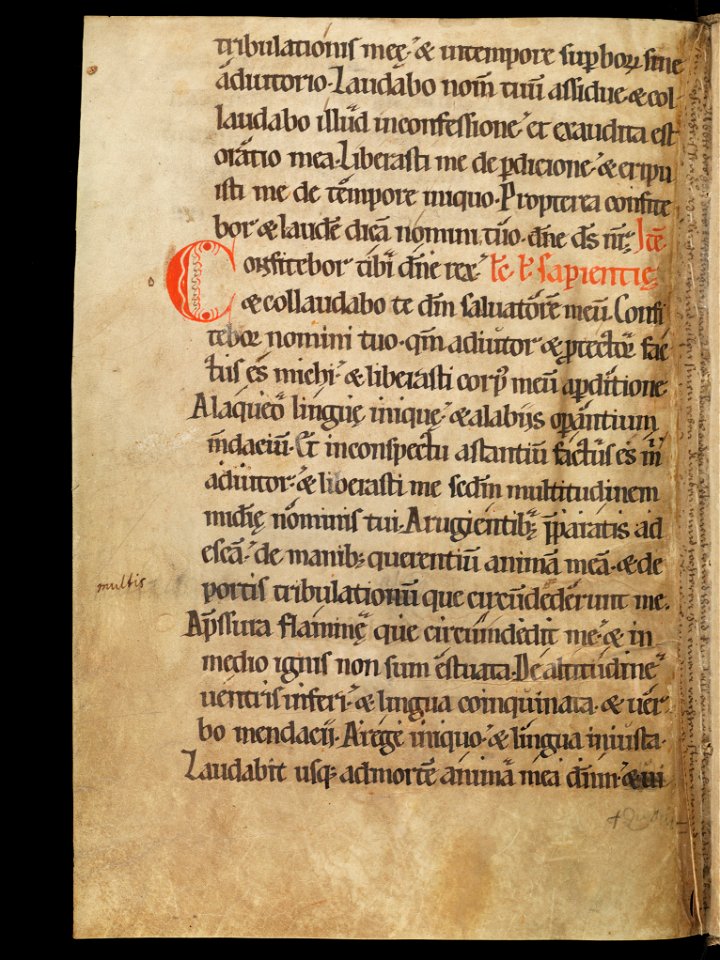 tribulationis meę. & intempore suꝑboꝝ sine
adiutorio. Laudabo nom̄ tuū assidue. & col
laudabo illud inconfessione. et exaudita est
oratio mea. Liberasti me de ꝑdicione. & eripu
isti me de tempore iniquo. Propterea confite
bor & laudē dicā nomini tuo. dn̄e ds̄ nr̄. Itē
Confitebor tibi dn̄e rex. sapientię
& collaudabo te dm̄ saluatorē meū. Confi
tebor nomini tuo. qm̄ adiutor & ꝓtector fac
tus es michi. & liberasti corp᷒ meū aꝑditione.
A laqueo linguę inique. & alabijs oꝑantium
m̄daciū. Et inconspectu astantiū factus es m̄
adiutor. & liberasti me sedm̄ multitudinem
mīdię nominis tui. A rugientibꝫ p̄paratis ad
escā. de manibꝫ querentiū animā meā. & de
portis tribulationū que circūdederunt me.
multis
Ap̄ssura flammę que circumdedit me. & in
medio ignis non sum ęstuata. De altitudine
uentris inferi. & lingua coinquinata. & uer
bo mendacij. A rege iniquo. & lingua iniusta.
Laudabit usqꝫ admortē animā mea dn̄m. & ui